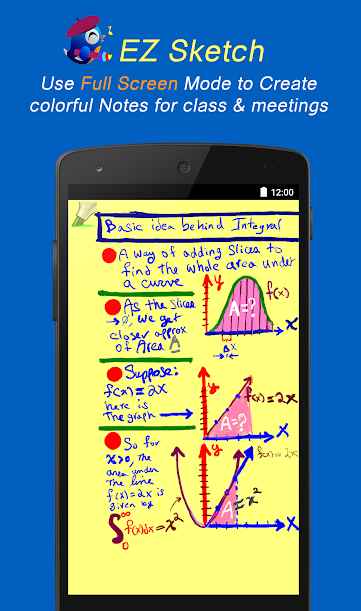 EZ Sketch
Use Full Screen Mode to Create
colorful Notes for class & meetings
12:00
Basic idea behind Integral
A way of adding slices to
find the whole area under
a curve
y
f(x)
A=?
x
Δx
As the slices
→ 0, we get
closer approx
of Area A
Suppose:
f(x) = 2x
here is
The graph →
y
f(x) = 2x
A=?
X
So for
x>0, the
area under
The line
f(x) = 2x is
given by
∫ f(x)dx = x²
0
y
f(x) = 2x
A = x²
X